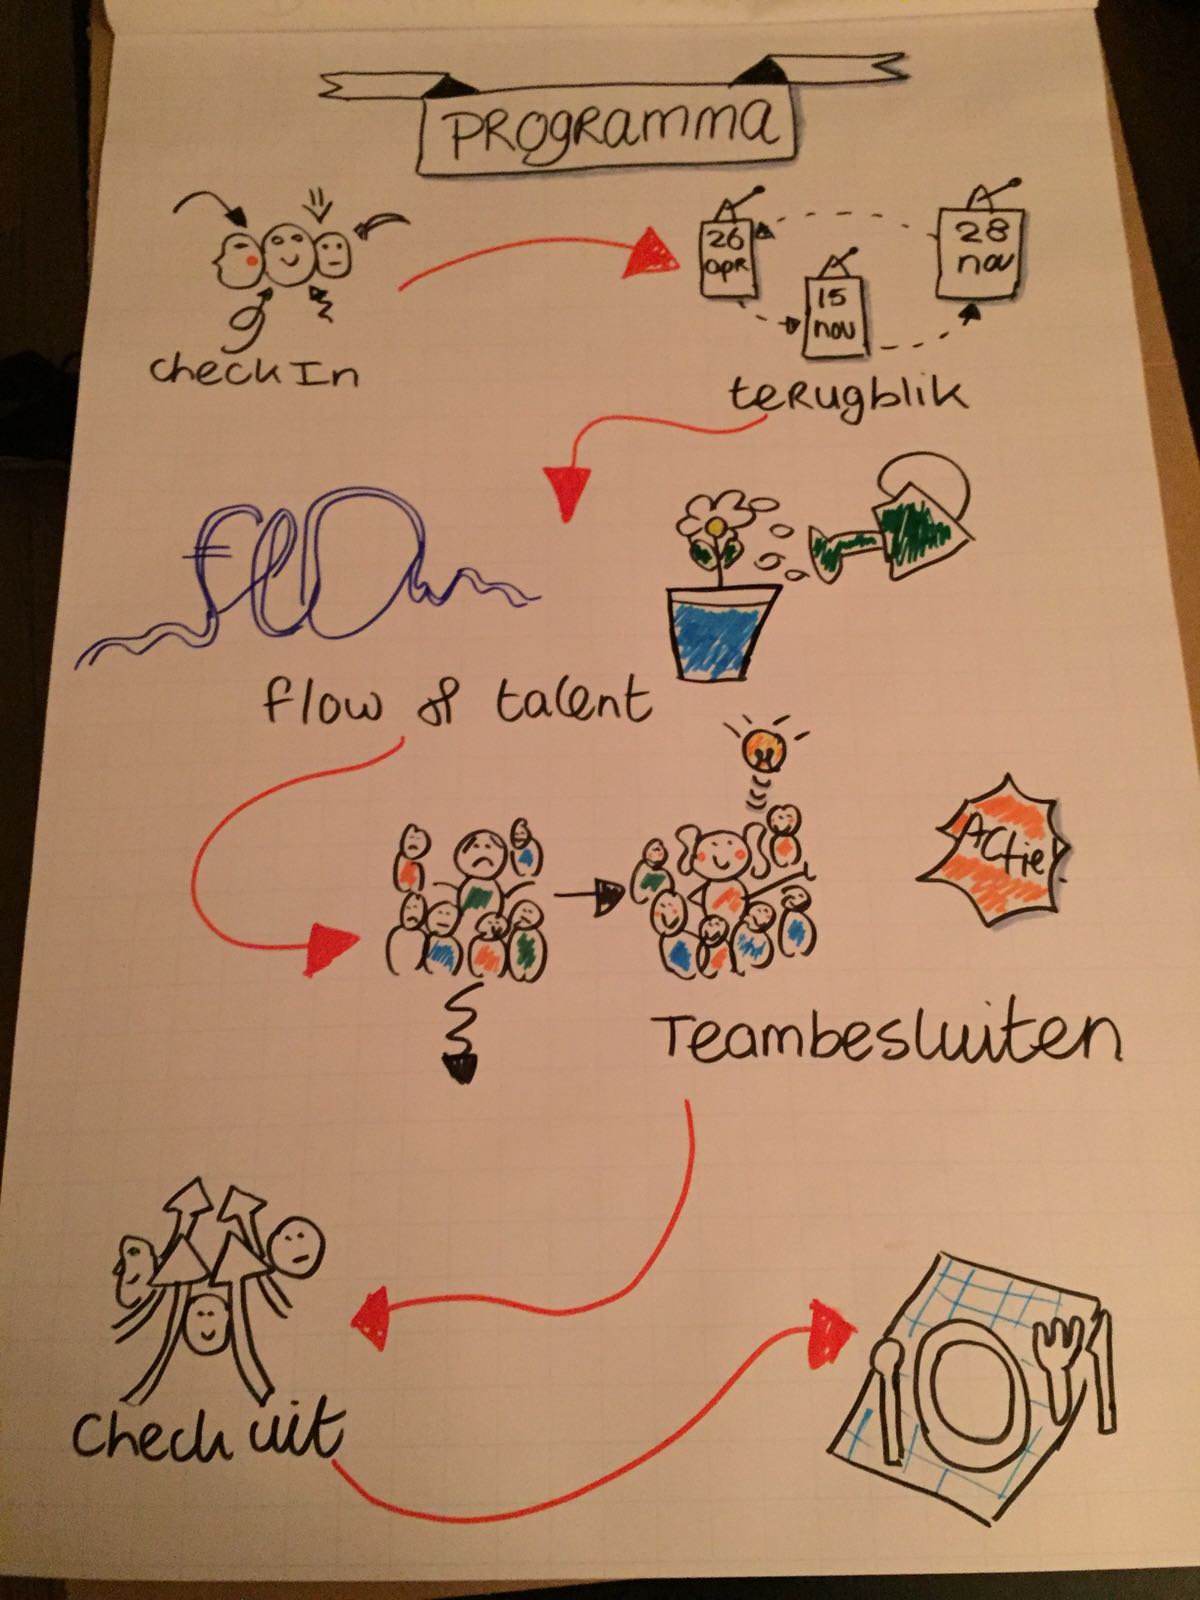 PROgRamma
26
apR
15
nov
28
nov
check In
teRugblik
flow
flow & talent
ACtie!
Teambesluiten
Check uit